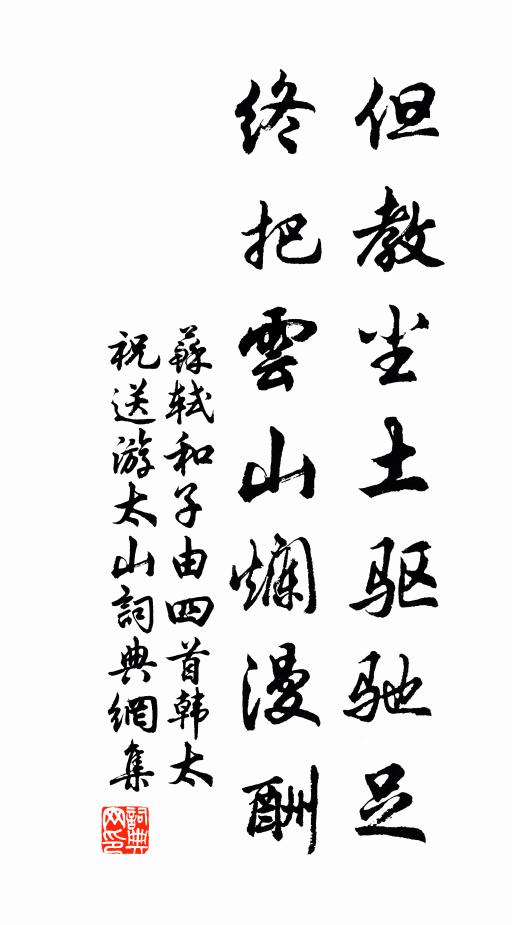 但教尘土驱驰足
终把雲山爛漫酬
蘇轼和子由四首韩太
祝送游太山詞典網集
詞典网印